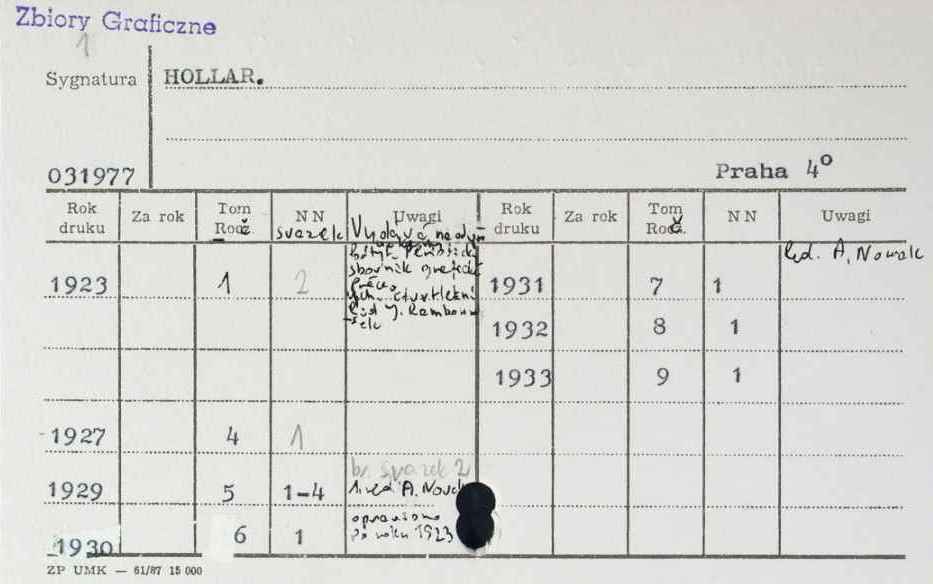 Zbiory Graficzne
1
Sygnatura HOLLAR.
031977 Praha 4⁰
Rok druku Za rok Tom Roč. NN svazek Uwagi Rok druku Za rok Tom Roč. NN Uwagi
red. A. Nowak
sborník
1923 1 2 1931 7 1
1932 8 1
1933 9 1
1927 4 1
br. svazek 2
1929 5 1-4
oprawiono
po roku 1923
1930 6 1
ZP UMK — 61/87 15 000